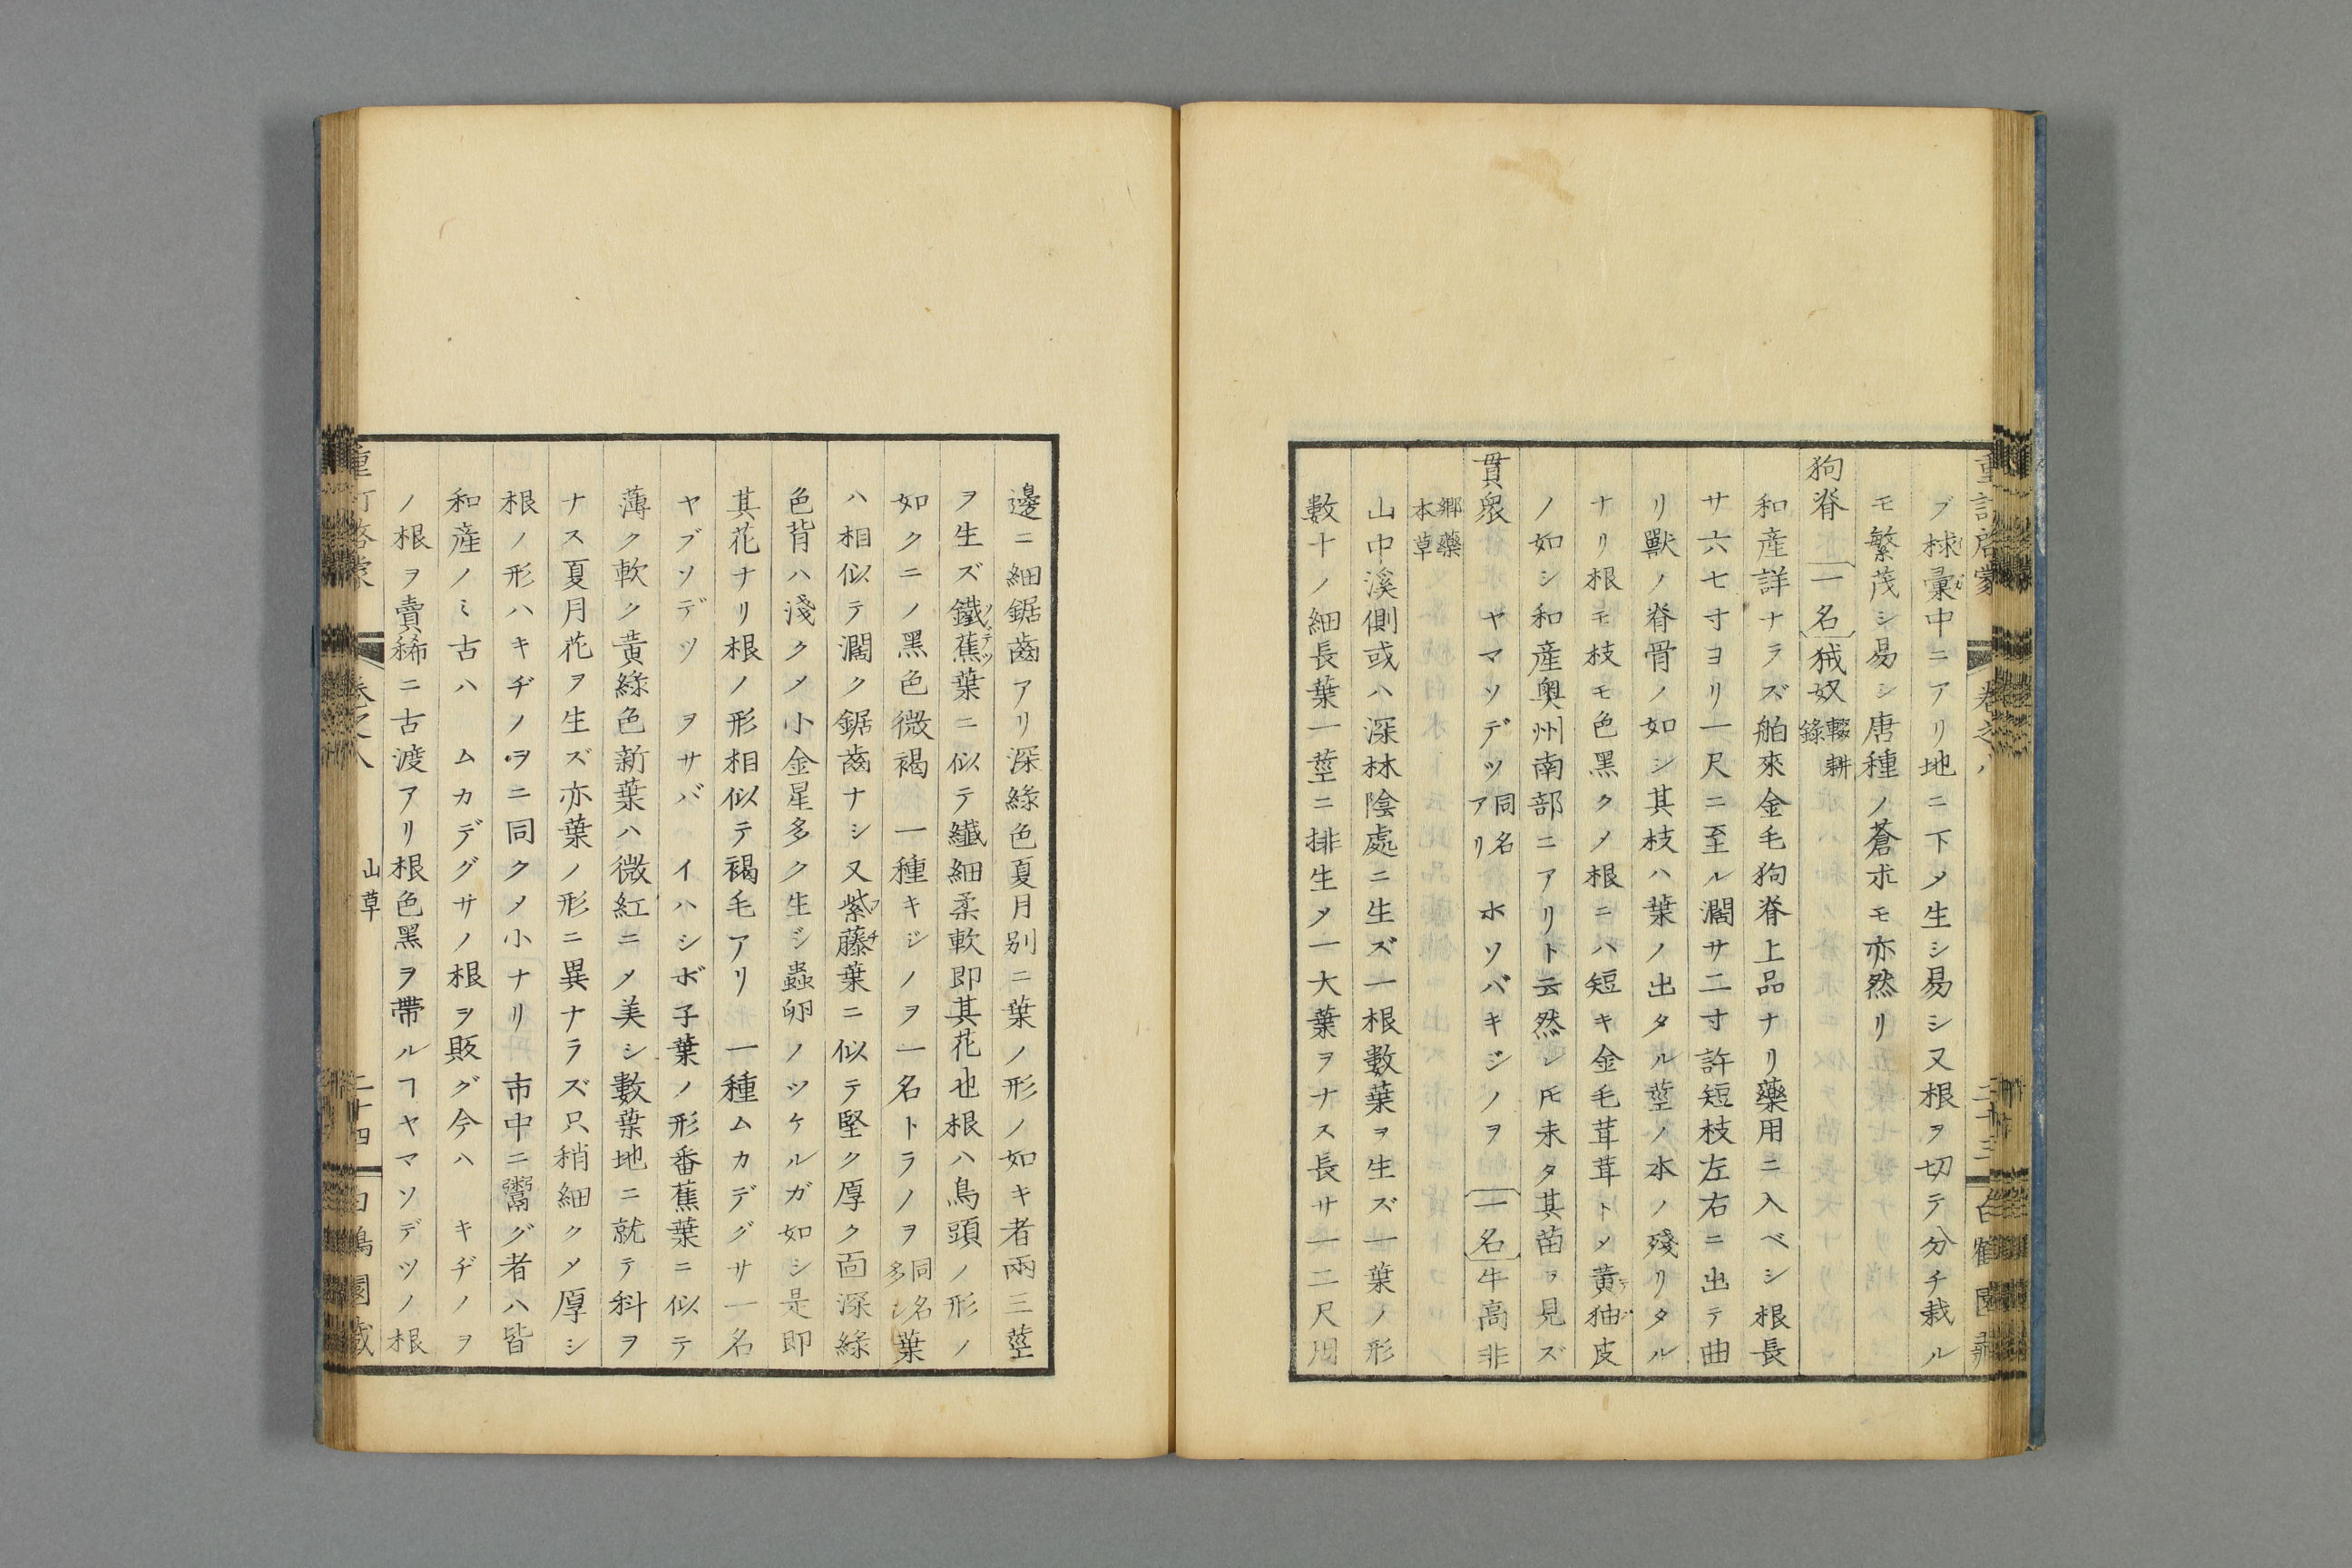 重訂啓蒙 卷之八 二十三 白鶴園藏
ブ梂彙中ニアリ地ニ下メ生シ易シ又根ヲ切テ分チ栽ル
モ繁茂シ易シ唐種ノ蒼朮モ亦然リ
狗脊 一名 狨奴 輟耕錄
和産詳ナラズ舶來金毛狗脊上品ナリ藥用ニ入ベシ根長
サ六七寸ヨリ一尺ニ至ル濶サ二寸許短枝左右ニ出テ曲
リ獸ノ脊骨ノ如シ其枝ハ葉ノ出タル莖ノ本ノ殘リタル
ナリ根モ枝モ色黑クメ根ニハ短キ金毛茸茸トメ黄㹨皮
ノ如シ和産奥州南部ニアリト云然レ𪜈未タ其苗ヲ見ズ
貫衆 ヤマソデツ 同名アリ ホソバキジノヲ 一名 牛高非
郷藥本草
山中溪側或ハ深林陰處ニ生ズ一根數葉ヲ生ズ一葉ノ形
數十ノ細長葉一莖ニ排生メ一大葉ヲナス長サ一二尺周
邊ニ細鋸齒アリ深緑色夏月別ニ葉ノ形ノ如キ者兩三莖
ヲ生ズ鐵蕉葉ニ似テ纎細柔軟即其花也根ハ鳥頭ノ形ノ
如クニメ黑色微褐 一種キジノヲ一名トラノヲ 同名多シ 葉
ハ相似テ濶ク鋸齒ナシ又紫藤葉ニ似テ堅ク厚ク面深緑
色背ハ淺クメ小金星多ク生ジ蟲卵ノツケルガ如シ是即
其花ナリ根ノ形相似テ褐毛アリ 一種ムカデグサ一名
ヤブソデツ ヲサバ イハシボ子葉ノ形番蕉葉ニ似テ
薄ク軟ク黄緑色新葉ハ微紅ニメ美シ數葉地ニ就テ科ヲ
ナス夏月花ヲ生ズ亦葉ノ形ニ異ナラズ只稍細クメ厚シ
根ノ形ハキヂノヲニ同クメ小ナリ 市中ニ鬻グ者ハ皆
和産ノミ古ハ ムカデグサノ根ヲ販グ今ハ キヂノヲ
ノ根ヲ賣稀ニ古渡アリ根色黑ヲ帶ルヿヤマソデツノ根
卷之八 山草 二十四 園藏